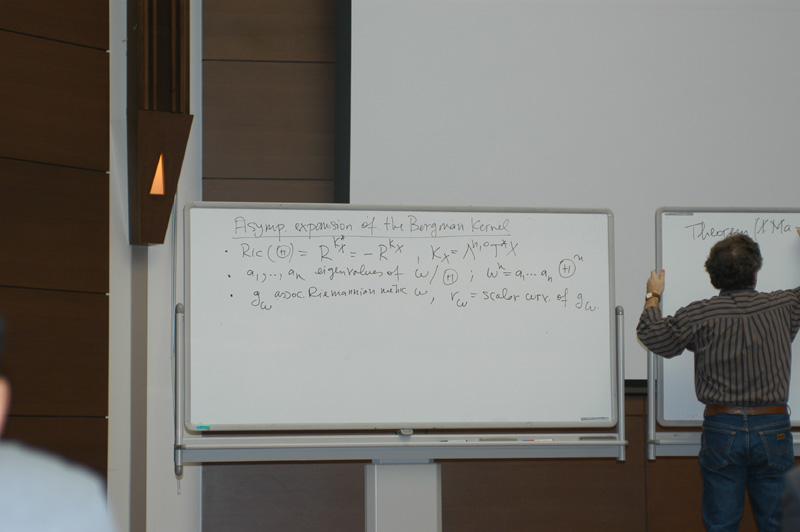 Asymp. expansion of the Bergman Kernel
• Ric(Ⓗ) = R^{K_X^*} = -R^{K_X}, K_X = Λ^{n,0}T^*X
• a_1, ..., a_n eigenvalues of ω/Ⓗ ; ω^n = a_1...a_n Ⓗ^n
• g_ω assoc. Riemannian metric ω, r_ω = scalar curv. of g_ω.
Theorem (X Ma